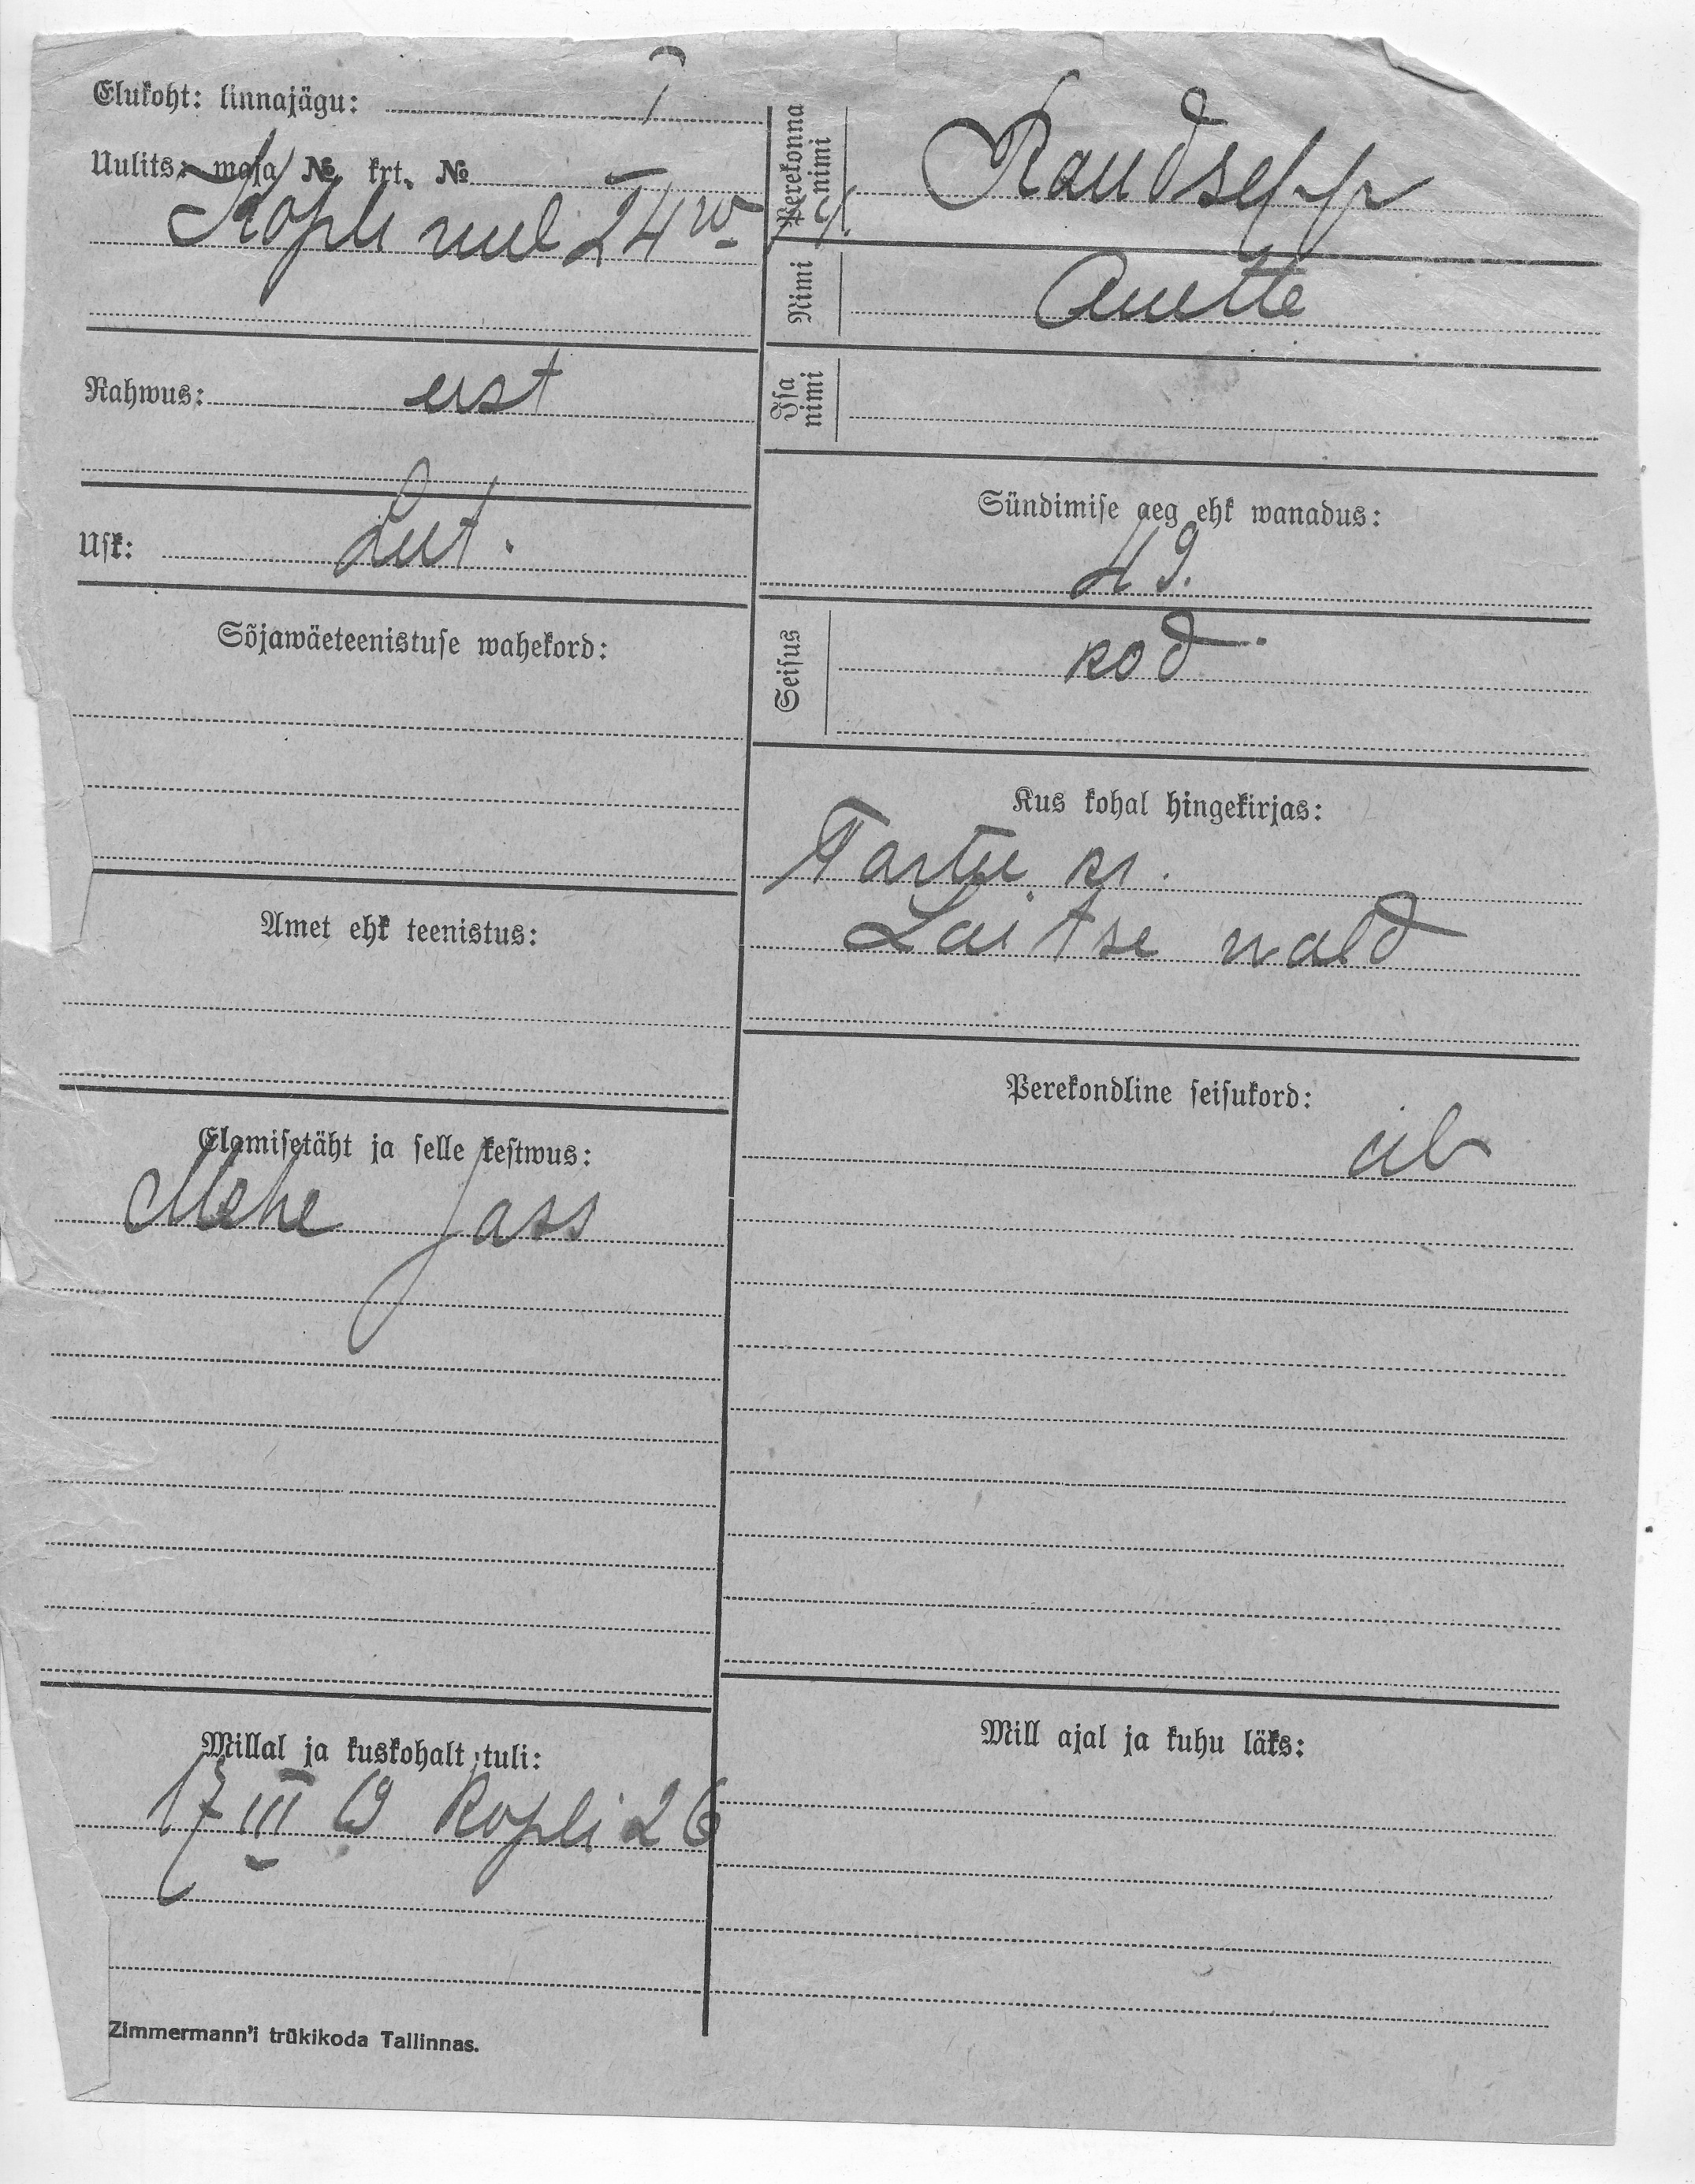 Elukoht: linnajägu: I
Uulits: maja № krt. №
Kopli uul 24
Rahwus: eest
Usk: Lut.
Sõjawäeteenistuse wahekord:
Amet ehk teenistus:
Elamisetäht ja selle kestwus:
Mehe pass
Millal ja kuskohalt tuli:
17 III 19 Kopli 26
Zimmermann'i trükikoda Tallinnas.
Perekonna nimi Raudsepp
Nimi Anette
Isa nimi
Sündimise aeg ehk wanadus:
49.
Seisus kod
Kus kohal hingekirjas:
Tartu kr.
Laitse wald
Perekondline seisukord:
ab
Mill ajal ja kuhu läks: